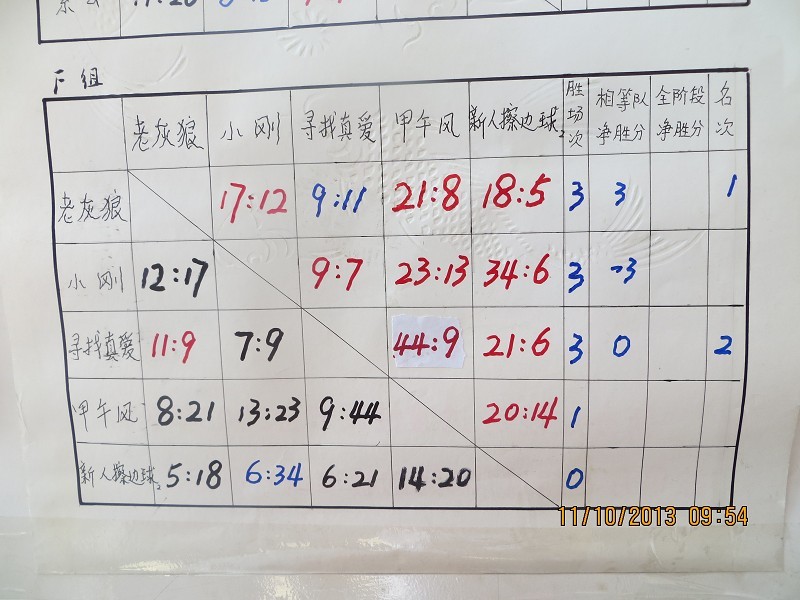 F组
老灰狼 小刚 寻找真爱 甲午风 新人擦边球2 胜场次 相等队净胜分 全阶段净胜分 名次
老灰狼 17:12 9:11 21:8 18:5 3 3 1
小刚 12:17 9:7 23:13 34:6 3 -3
寻找真爱 11:9 7:9 44:9 21:6 3 0 2
甲午风 8:21 13:23 9:44 20:14 1
新人擦边球2 5:18 6:34 6:21 14:20 0
11/10/2013 09:54